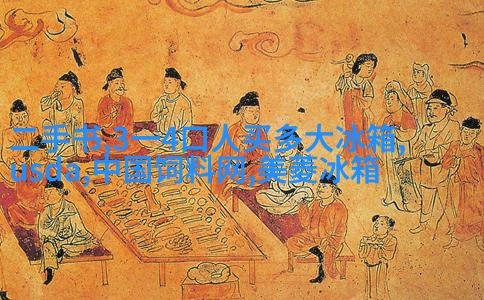 二手书,3一4口人买多大冰箱,
usda,中国饲料网,美菱冰箱